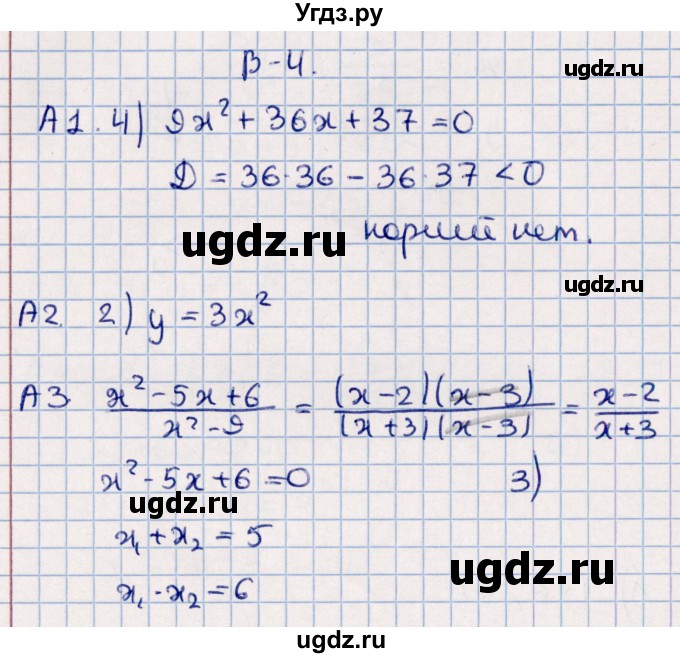 Угдз.ру
ugdz.ru
В-4.
ugdz.ru
А1. 4) 9x² + 36x + 37 = 0
D = 36·36 - 36·37 < 0
ugdz.ru
корний нет.
ugdz.ru
А2. 2) y = 3x²
А3. (x² - 5x + 6)/(x² - 9) = ((x - 2)(x - 3))/((x + 3)(x - 3)) = (x - 2)/(x + 3)
x² - 5x + 6 = 0
3)
ugdz.ru
x₁ + x₂ = 5
ugdz.ru
x₁ · x₂ = 6
ugdz.ru